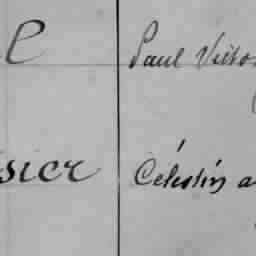 e Paul Victo
sier Célestin a